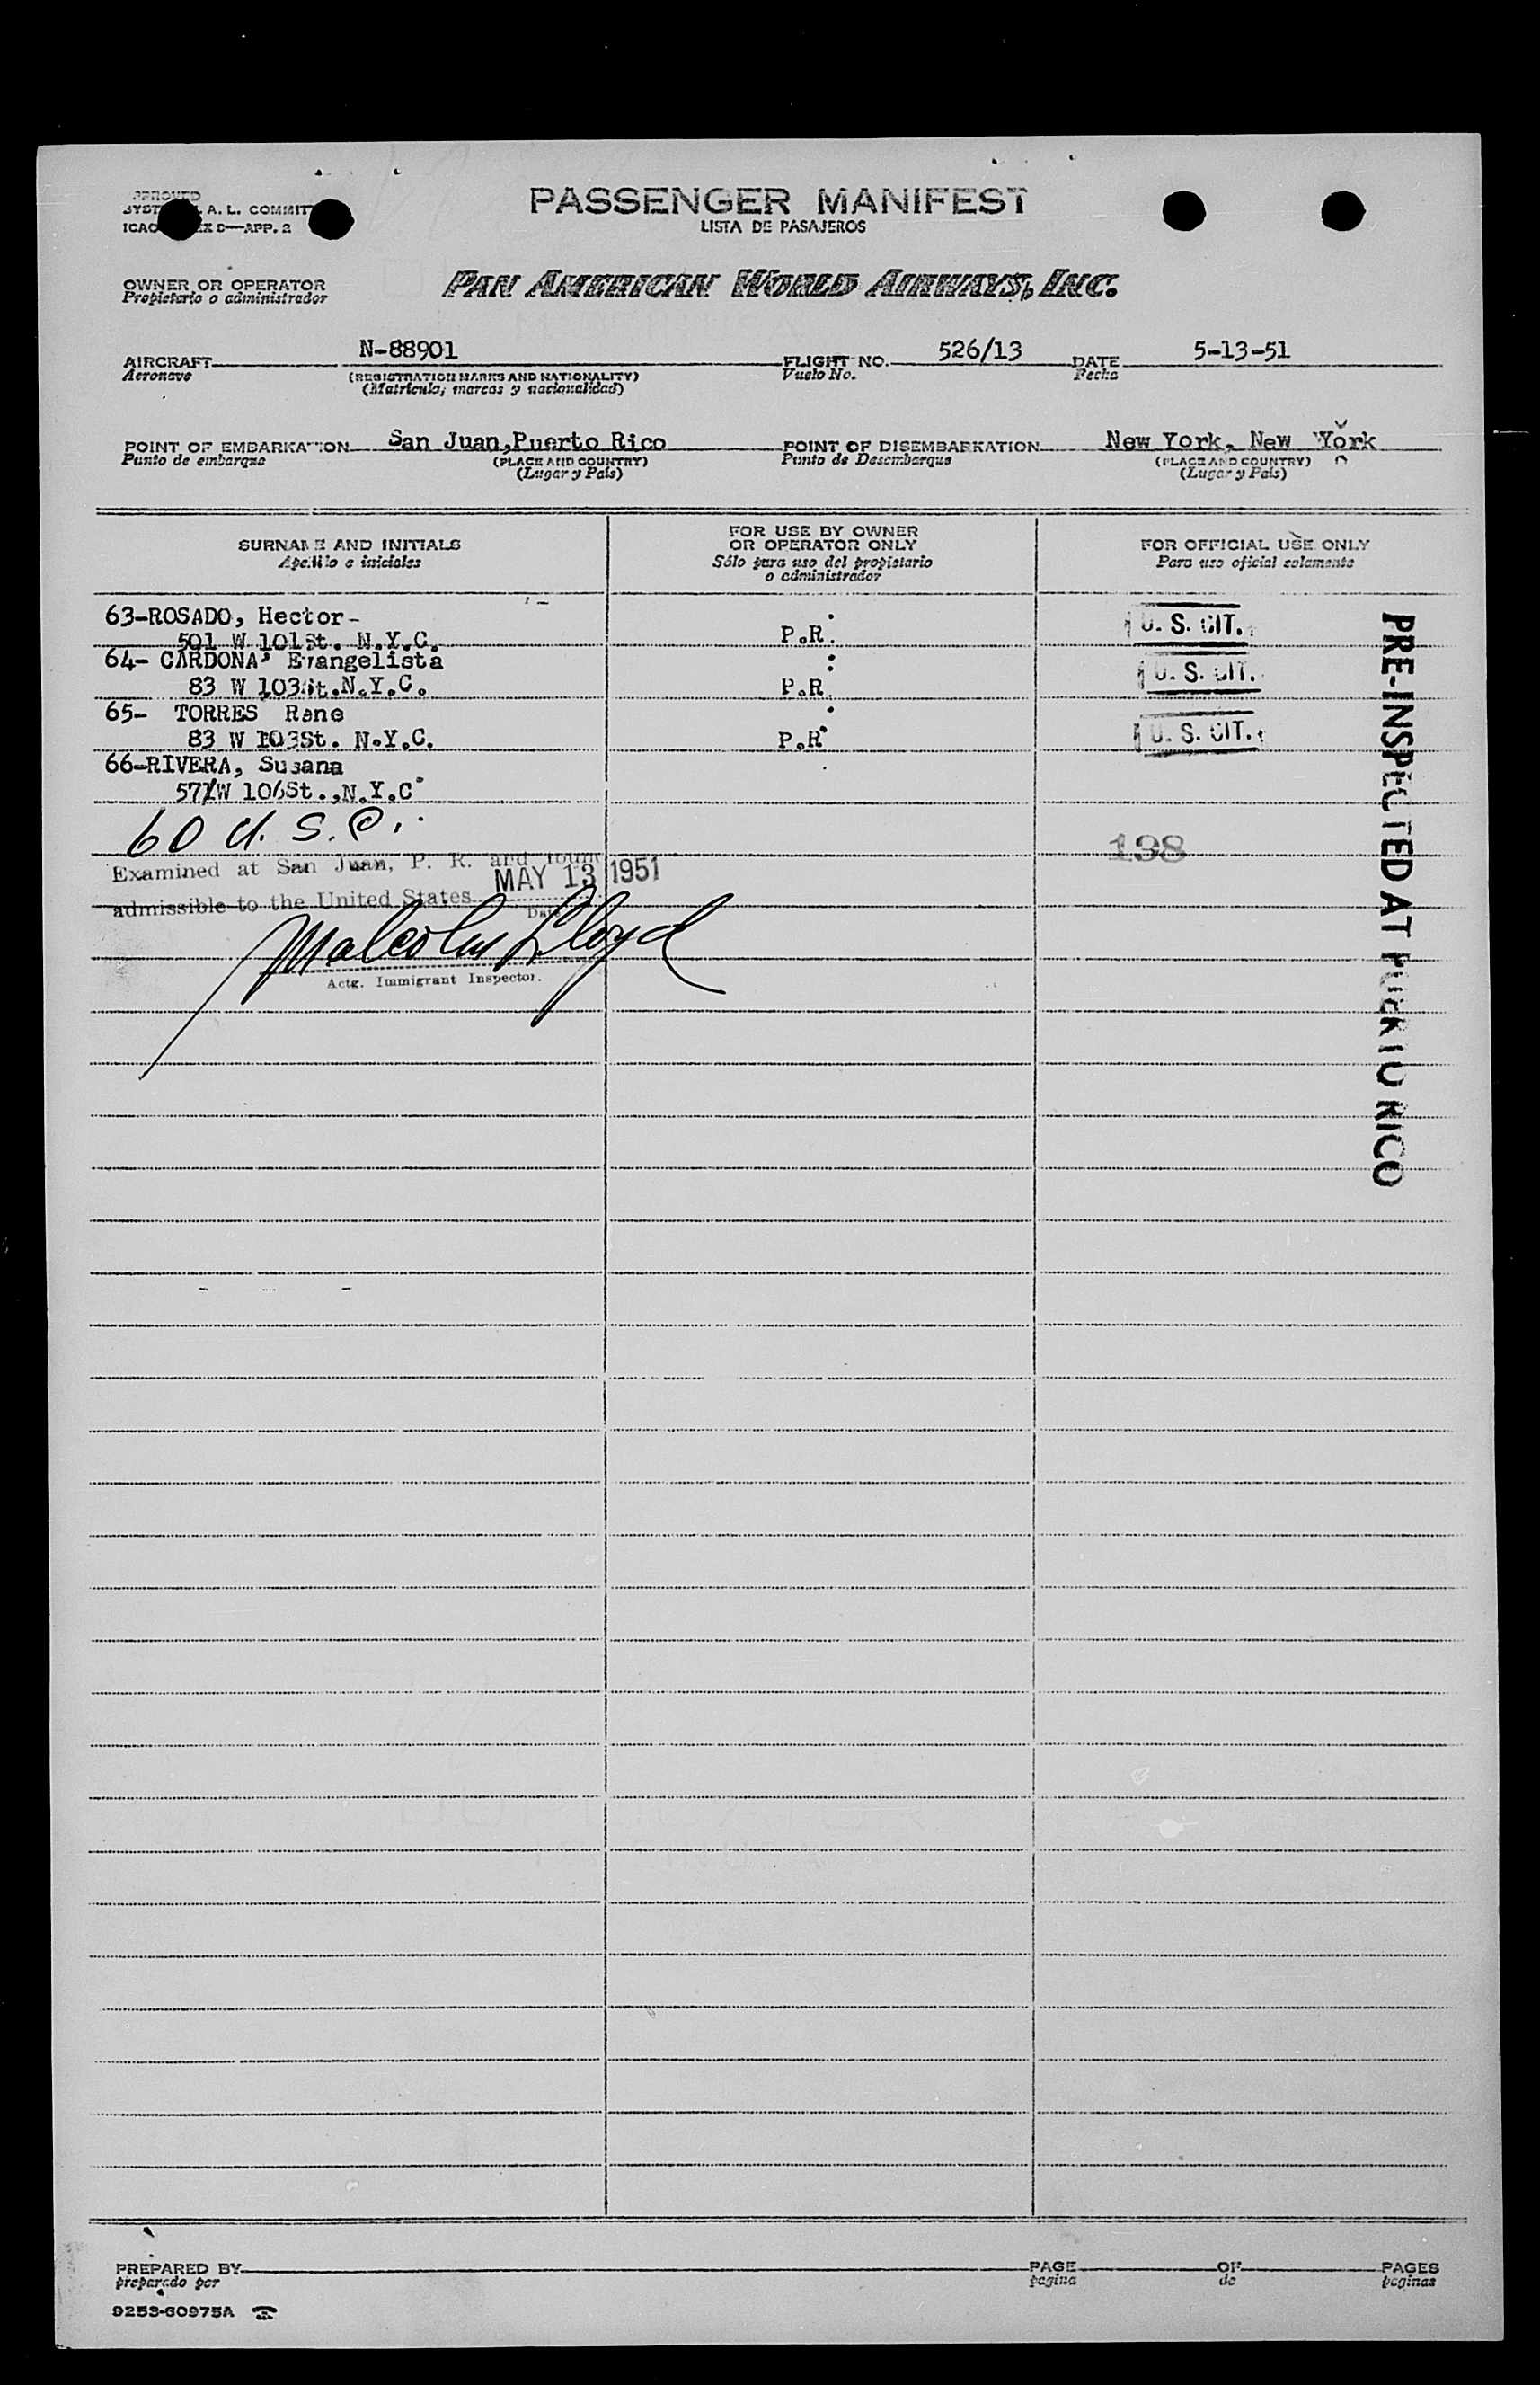 APPROVED
A. L. COMMIT
ICAO EX 9—APP. 2
PASSENGER MANIFEST
LISTA DE PASAJEROS
OWNER OR OPERATOR
Propietario o administrador
PAN AMERICAN WORLD AIRWAYS, INC.
AIRCRAFT N-88901 FLIGHT NO. 526/13 DATE 5-13-51
Aeronave (REGISTRATION MARKS AND NATIONALITY) Vuelo No. Fecha
(Matrícula, marcas y nacionalidad)
POINT OF EMBARKATION San Juan,Puerto Rico POINT OF DISEMBARKATION New York, New York
Punto de embarque (PLACE AND COUNTRY) Punto de Desembarque (PLACE AND COUNTRY)
(Lugar y País) (Lugar y País)
SURNAME AND INITIALS FOR USE BY OWNER OR OPERATOR ONLY FOR OFFICIAL USE ONLY
Apellido e iniciales Sólo para uso del propietario o administrador Para uso oficial solamente
63-ROSADO, Hector-
501 W 101St. N.Y.C. P.R. U. S. CIT.
64- CARDONA, Evangelista
83 W 103St.N.Y.C. P.R. U. S. CIT.
65- TORRES Rene
83 W 103St. N.Y.C. P.R. U. S. CIT.
66-RIVERA, Susana
57 W 106St.,N.Y.C.
60 U. S. C.
198
Examined at San Juan, P. R. and found
admissible to the United States MAY 13 1951
Date
Malcolm Lloyd
Actg. Immigrant Inspector.
PRE-INSPECTED AT PUERTO RICO
PREPARED BY PAGE OF PAGES
preparado por pagina de paginas
9253-60975A